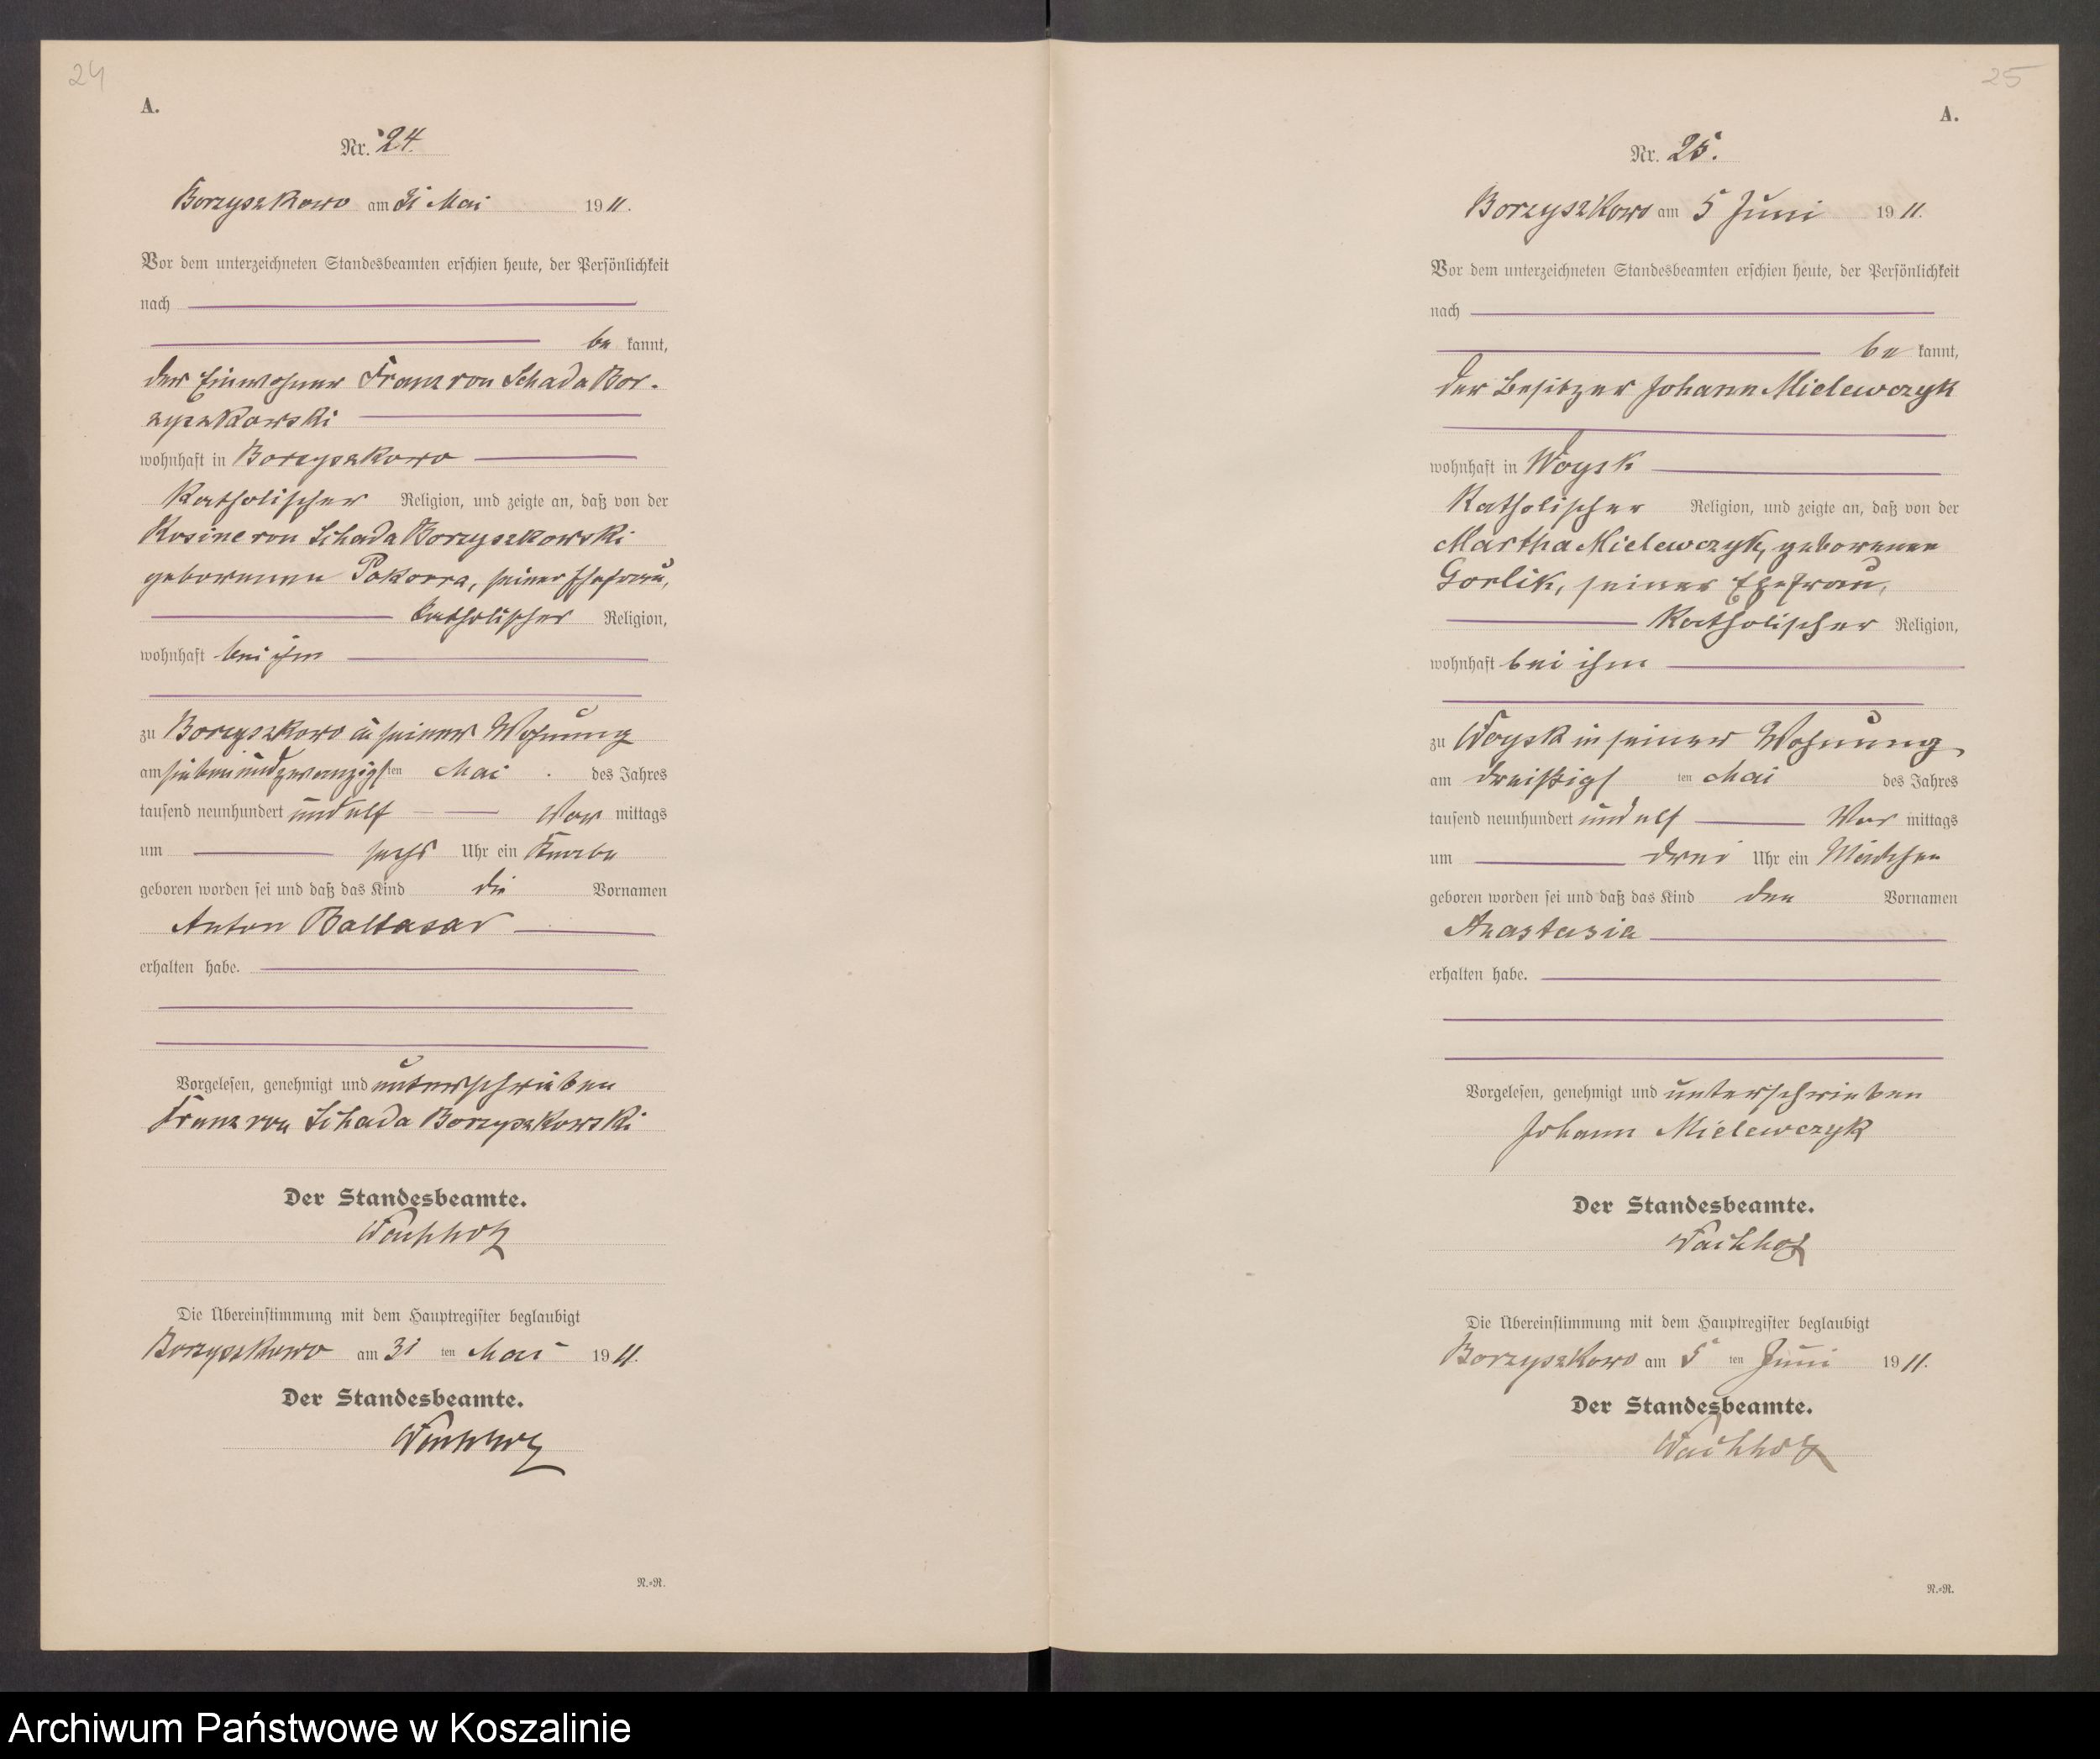 24
A.
Nr. 24.
Borzyszkowo am 31 Mai 1911.
Vor dem unterzeichneten Standesbeamten erschien heute, der Persönlichkeit
nach
be kannt,
der Einwohner Franz von Schada Bor-
zyszkowski
wohnhaft in Borzyszkowo
katholischer Religion, und zeigte an, daß von der
Rosine von Schada Borzyszkowski
geborenen Pokorra, seiner Ehefrau,
katholischer Religion,
wohnhaft bei ihm
zu Borzyszkowo in seiner Wohnung
am siebenundzwanzigsten Mai des Jahres
tausend neunhundert und elf Vor mittags
um sechs Uhr ein Knabe
geboren worden sei und daß das Kind die Vornamen
Anton Baltasar
erhalten habe.
Vorgelesen, genehmigt und unterschrieben
Franz von Schada Borzyszkowski
Der Standesbeamte.
Wachholz
Die Übereinstimmung mit dem Hauptregister beglaubigt
Borzyszkowo am 31 ten Mai 1911.
Der Standesbeamte.
Wachholz
R.=R.
25
A.
Nr. 25.
Borzyszkowo am 5 Juni 1911.
Vor dem unterzeichneten Standesbeamten erschien heute, der Persönlichkeit
nach
be kannt,
der Besitzer Johann Mielewczyk
wohnhaft in Woysk
katholischer Religion, und zeigte an, daß von der
Martha Mielewczyk, geborenen
Gorlik, seiner Ehefrau,
katholischer Religion,
wohnhaft bei ihm
zu Woysk in seiner Wohnung
am dreißigs ten Mai des Jahres
tausend neunhundert und elf Vor mittags
um drei Uhr ein Mädchen
geboren worden sei und daß das Kind den Vornamen
Anastasia
erhalten habe.
Vorgelesen, genehmigt und unterschrieben
Johann Mielewczyk
Der Standesbeamte.
Wachholz
Die Übereinstimmung mit dem Hauptregister beglaubigt
Borzyszkowo am 5 ten Juni 1911.
Der Standesbeamte.
Wachholz
R.=R.
Archiwum Państwowe w Koszalinie